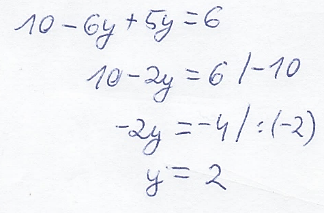 10 - 6y + 5y = 6
10 - 2y = 6 / -10
-2y = -4 / : (-2)
y = 2